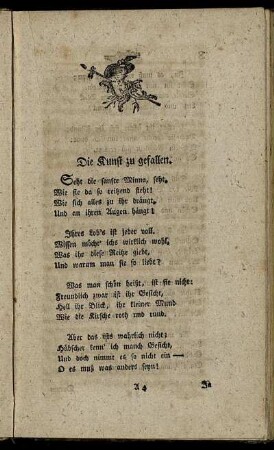 Die Kunst zu gefallen.
Seht die sanfte Minna, seht,
Wie sie da so reitzend steht!
Wie sich alles zu ihr drängt,
Und an ihren Augen hängt!
Ihres Lob's ist jeder voll.
Wissen möcht' ichs wirklich wohl,
Was ihr diese Reitze giebt,
Und warum man sie so liebt?
Was man schön heißt, ist sie nicht:
Freundlich zwar ist ihr Gesicht,
Hell ihr Blick, ihr kleiner Mund
Wie die Kirsche roth und rund.
Aber das ists wahrlich nicht:
Hübscher kenn' ich manch Gesicht,
Und doch nimmt es so nicht ein —
O es muß was anders seyn!
A 4 Ja